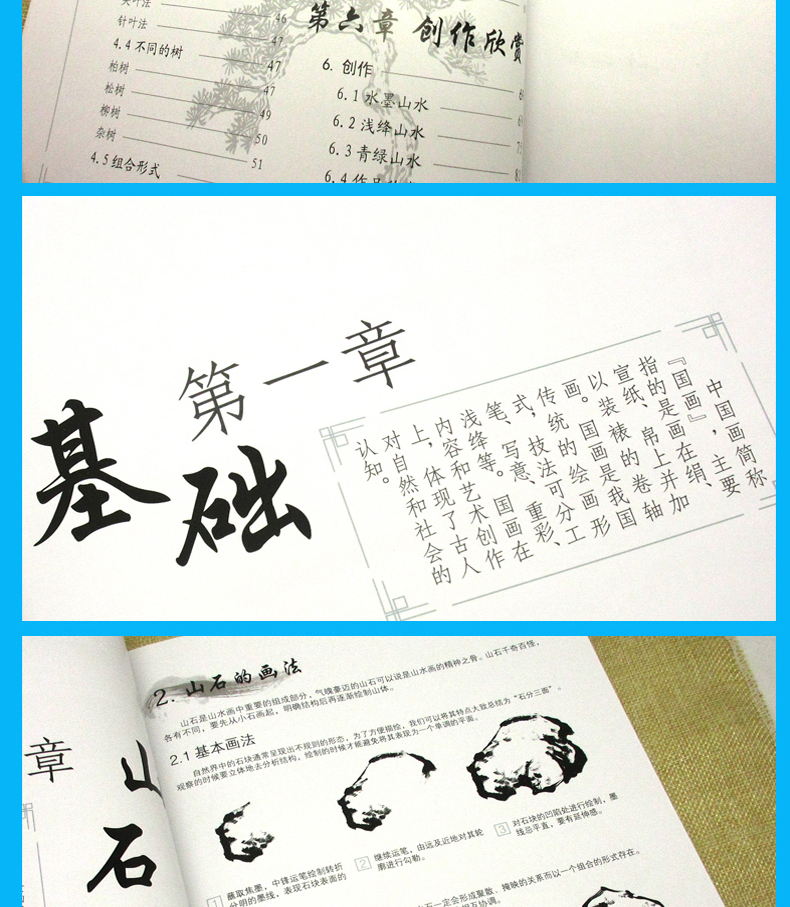 夹叶法 46
针叶法 47
4.4 不同的树 47
柏树 47
松树 49
柳树 50
杂树 51
4.5 组合形式
第六章 创作欣赏
6. 创作
6.1 水墨山水
6.2 浅绛山水
6.3 青绿山水
6.4
第一章
基础
中国画简称
『国画』，主要
指的是画在绢、
宣纸、帛上并加
以装裱的卷轴
画。国画是我国
传统的绘画形
式，技法可分工
笔、写意、重彩、
浅绛等。国画在
内容和艺术创作
上，体现了古人
对自然和社会的
认知。
章
山石
2. 山石的画法
山石是山水画中重要的组成部分，气魄豪迈的山石可以说是山水画的精神之骨。山石千奇百怪，
各有不同，要先从小石画起，明确结构后再逐渐绘制山体。
2.1 基本画法
自然界中的石块通常呈现出不规则的形态，为了方便描绘，我们可以将其特点大致总结为“石分三面”。
观察的时候要立体地去分析结构，绘制的时候才能避免将其表现为一个单调的平面。
1 蘸取焦墨，中锋运笔绘制转折
分明的墨线，表现石块表面的
2 继续运笔，由远及近地对其轮
廓进行勾勒。
3 对石块的凹陷处进行绘制，墨
线总平直，要有延伸感。
石一定会形成聚散、掩映的关系而以一个组合的形式存在。
相互协调。